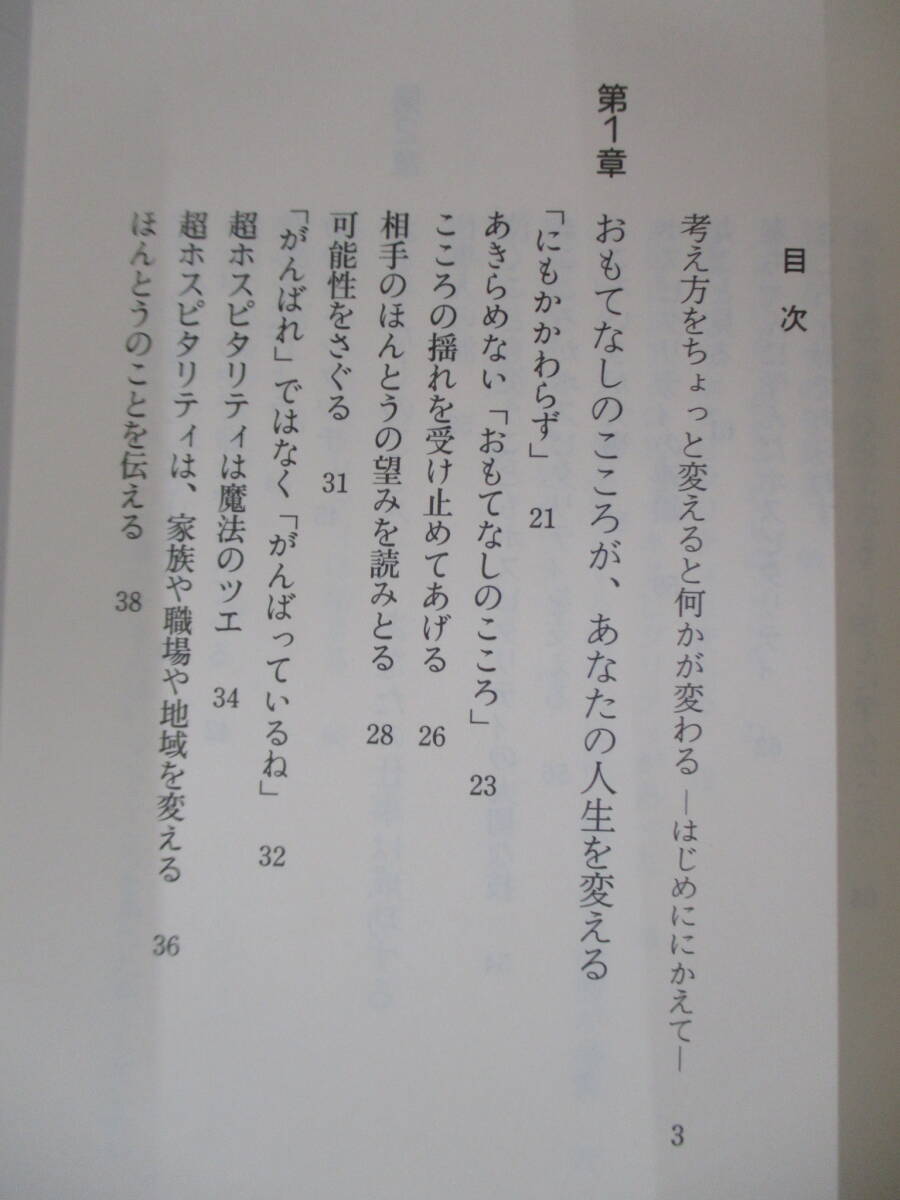 目次
考え方をちょっと変えると何かが変わる ―はじめににかえて― 3
第1章 おもてなしのこころが、あなたの人生を変える
「にもかかわらず」 21
あきらめない「おもてなしのこころ」 23
こころの揺れを受け止めてあげる 26
相手のほんとうの望みを読みとる 28
可能性をさぐる 31
「がんばれ」ではなく「がんばっているね」 32
超ホスピタリティは魔法のツエ 34
超ホスピタリティは、家族や職場や地域を変える 36
ほんとうのことを伝える 38